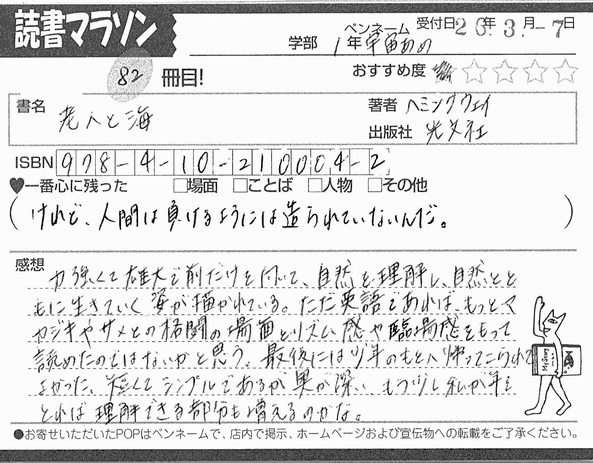 読書マラソン
ペンネーム 受付日26年3月-7日
学部 1年 宇宙あめ
82冊目!
おすすめ度 ★☆☆☆☆
書名 老人と海
著者 ヘミングウェイ
出版社 光文社
ISBN 978-4-10-210004-2
♥一番心に残った □場面 □ことば □人物 □その他
(けれど、人間は負けるようには造られていないんだ。)
感想
力強くて雄大で前だけを向いて、自然を理解し、自然とと
もに生きていく姿が描かれている。ただ英語であれば、もっとマ
カジキやサメとの格闘の場面とリズム感や臨場感をもって
読めたのではないかと思う。最後には少年のもとへ帰ってこられて
よかった。短くてシンプルであるが奥が深い。もう少し私が年を
とれば理解できる部分も増えるのかな。
●お寄せいただいたPOPはペンネームで、店内で掲示、ホームページおよび宣伝物への転載をご了承ください。